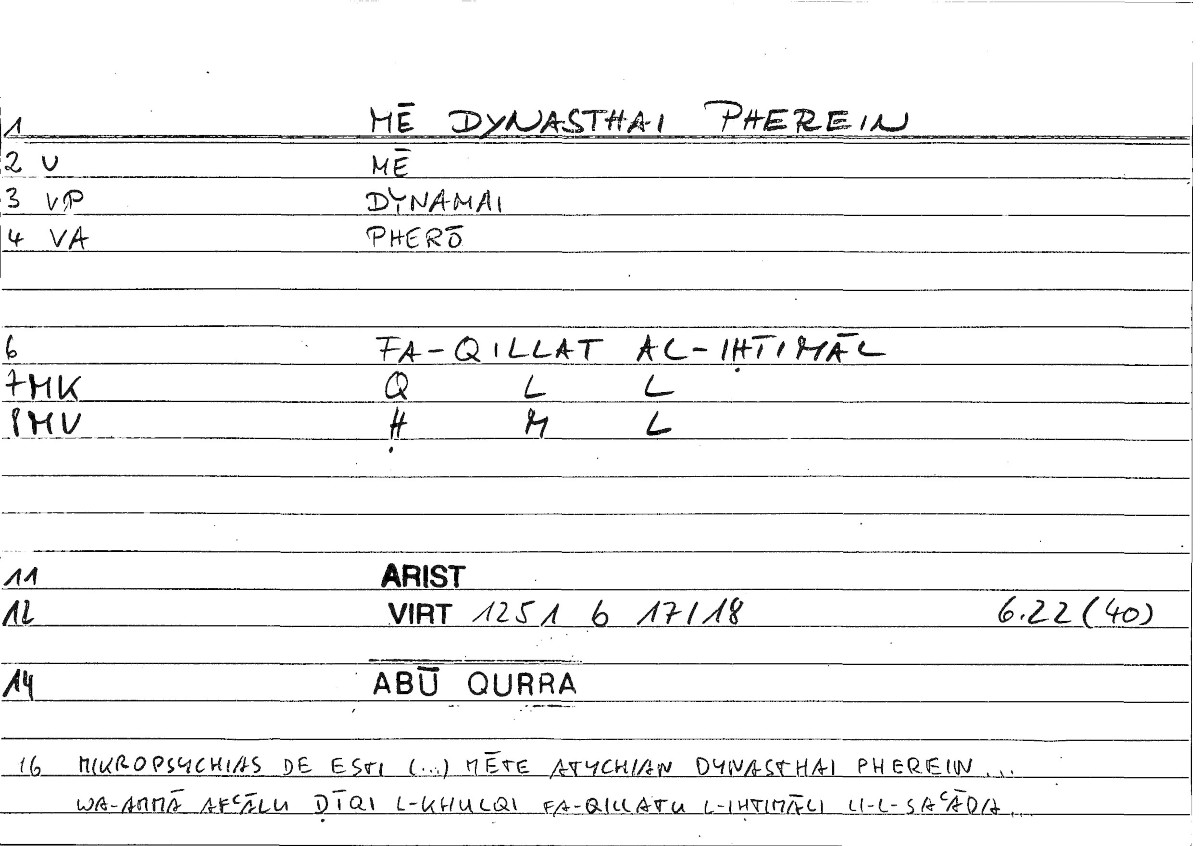 1 MĒ DYNASTHAI PHEREIN
2 U MĒ
3 VP DYNAMAI
4 VA PHERŌ
6 FA-QILLAT AL-IḤTIMĀL
7 MK Q L L
8 MV Ḥ M L
11 ARIST
12 VIRT 1251 b 17/18 6.22 (40)
14 ABŪ QURRA
16 MIKROPSYCHIAS DE ESTI (...) MĒTE ATYCHIAN DYNASTHAI PHEREIN ...
WA-AMMĀ AFʿĀLU ḌĪQI L-KHULQI FA-QILLATU L-IḤTIMĀLI LI-L-SAʿĀDA...